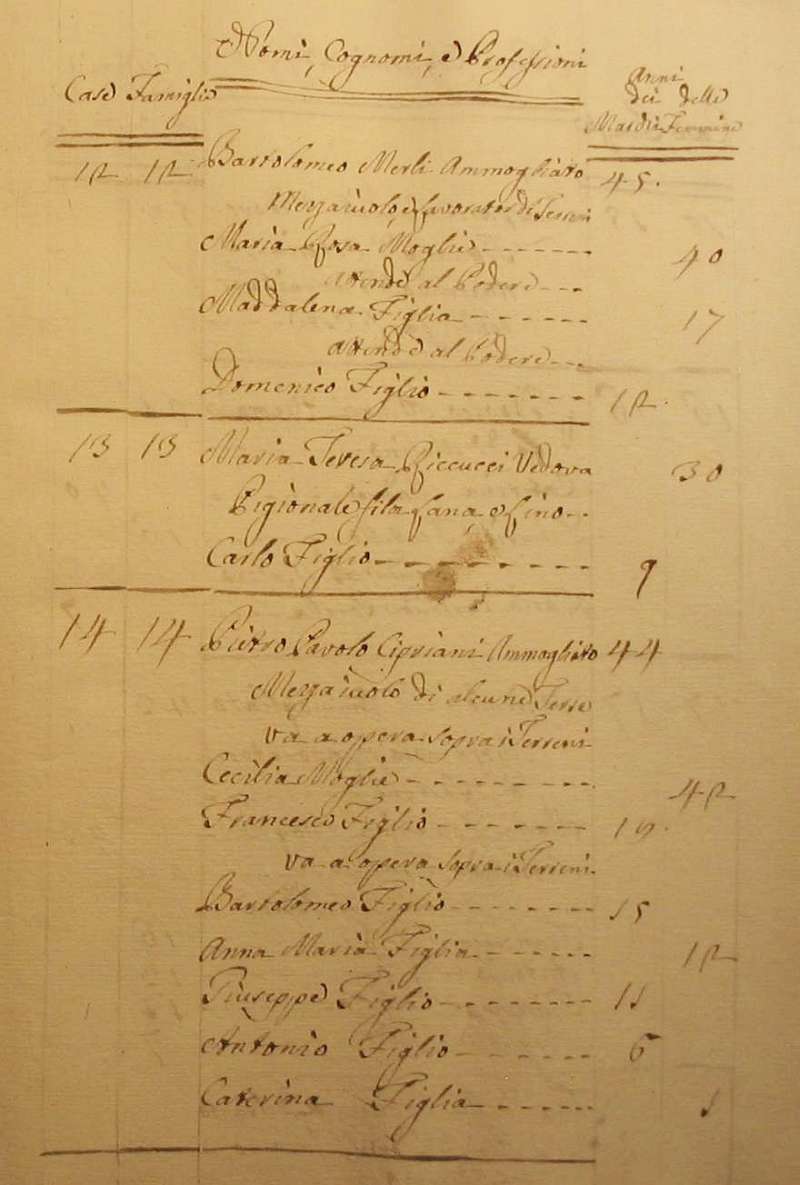 Nomi, Cognomi, e Professioni
Case Famiglie
Anni
dei delle
Maschi Femmine
12 12 Bartolomeo Merli Ammogliato 45.
Mezzaiuolo, e Lavorator di Terreni
Maria Rosa Moglie 40
attende al Podere
Maddalena Figlia 17
attende al Podere
Domenico Figlio 12.
13 13 Maria Teresa Riccucci Vedova 30
Pigionale fila Lana, e Lino
Carlo Figlio 9
14 14 Pietro Pavolo Cipriani Ammogliato 44
Mezzaiuolo di alcune Terre
va a opera sopra i Terreni
Cecilia Moglie 42
Francesco Figlio 19.
va a opera sopra i Terreni.
Bartolomeo Figlio 15
Anna Maria Figlia 12
Giuseppe Figlio 11
Antonio Figlio 6
Caterina Figlia 1